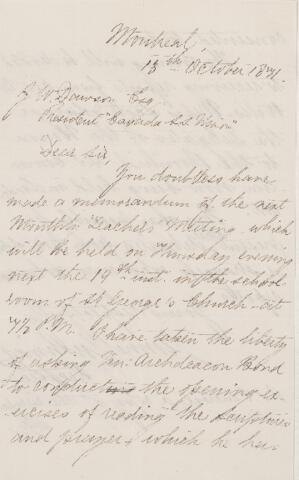 Montreal,
13th October 1871.
J. W. Dawson Esq.
President "Canada S.S. Union"
Dear Sir,
You doubtless have
made a memorandum of the next
Monthly Teachers Meeting which
will be held on Thursday evening
next the 19th inst. in the school
room of St George's Church at
7½ P.M. I have taken the liberty
of asking Ven: Archdeacon Bond
to conduct the opening ex-
ercises of reading the Scriptures
and prayer, which he has